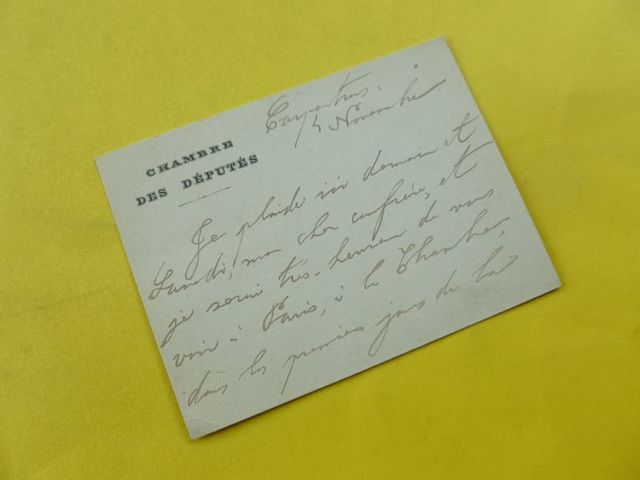 CHAMBRE
DES DÉPUTÉS
Carpentras.
4 Novembre
Je plaide ici demain et
Lundi, mon cher confrère, et
je serai très heureux de vous
voir à Paris, à la Chambre,
dans les premiers jours de la